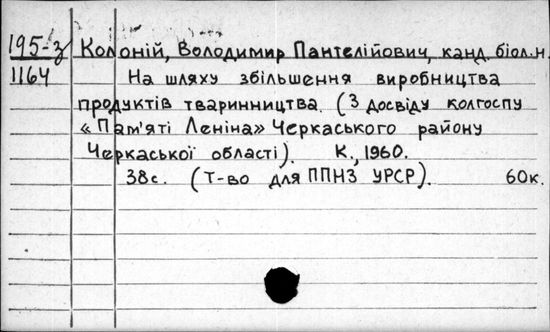 195-з Колоній, Володимир Пантелійович, канд. біол. н.
1164 На шляху збільшення виробництва
продуктів тваринництва. (З досвіду колгоспу
«Пам'яті Леніна» Черкаського району
Черкаської області). К., 1960.
38с. (Т-во для ППНЗ УРСР). 60к.